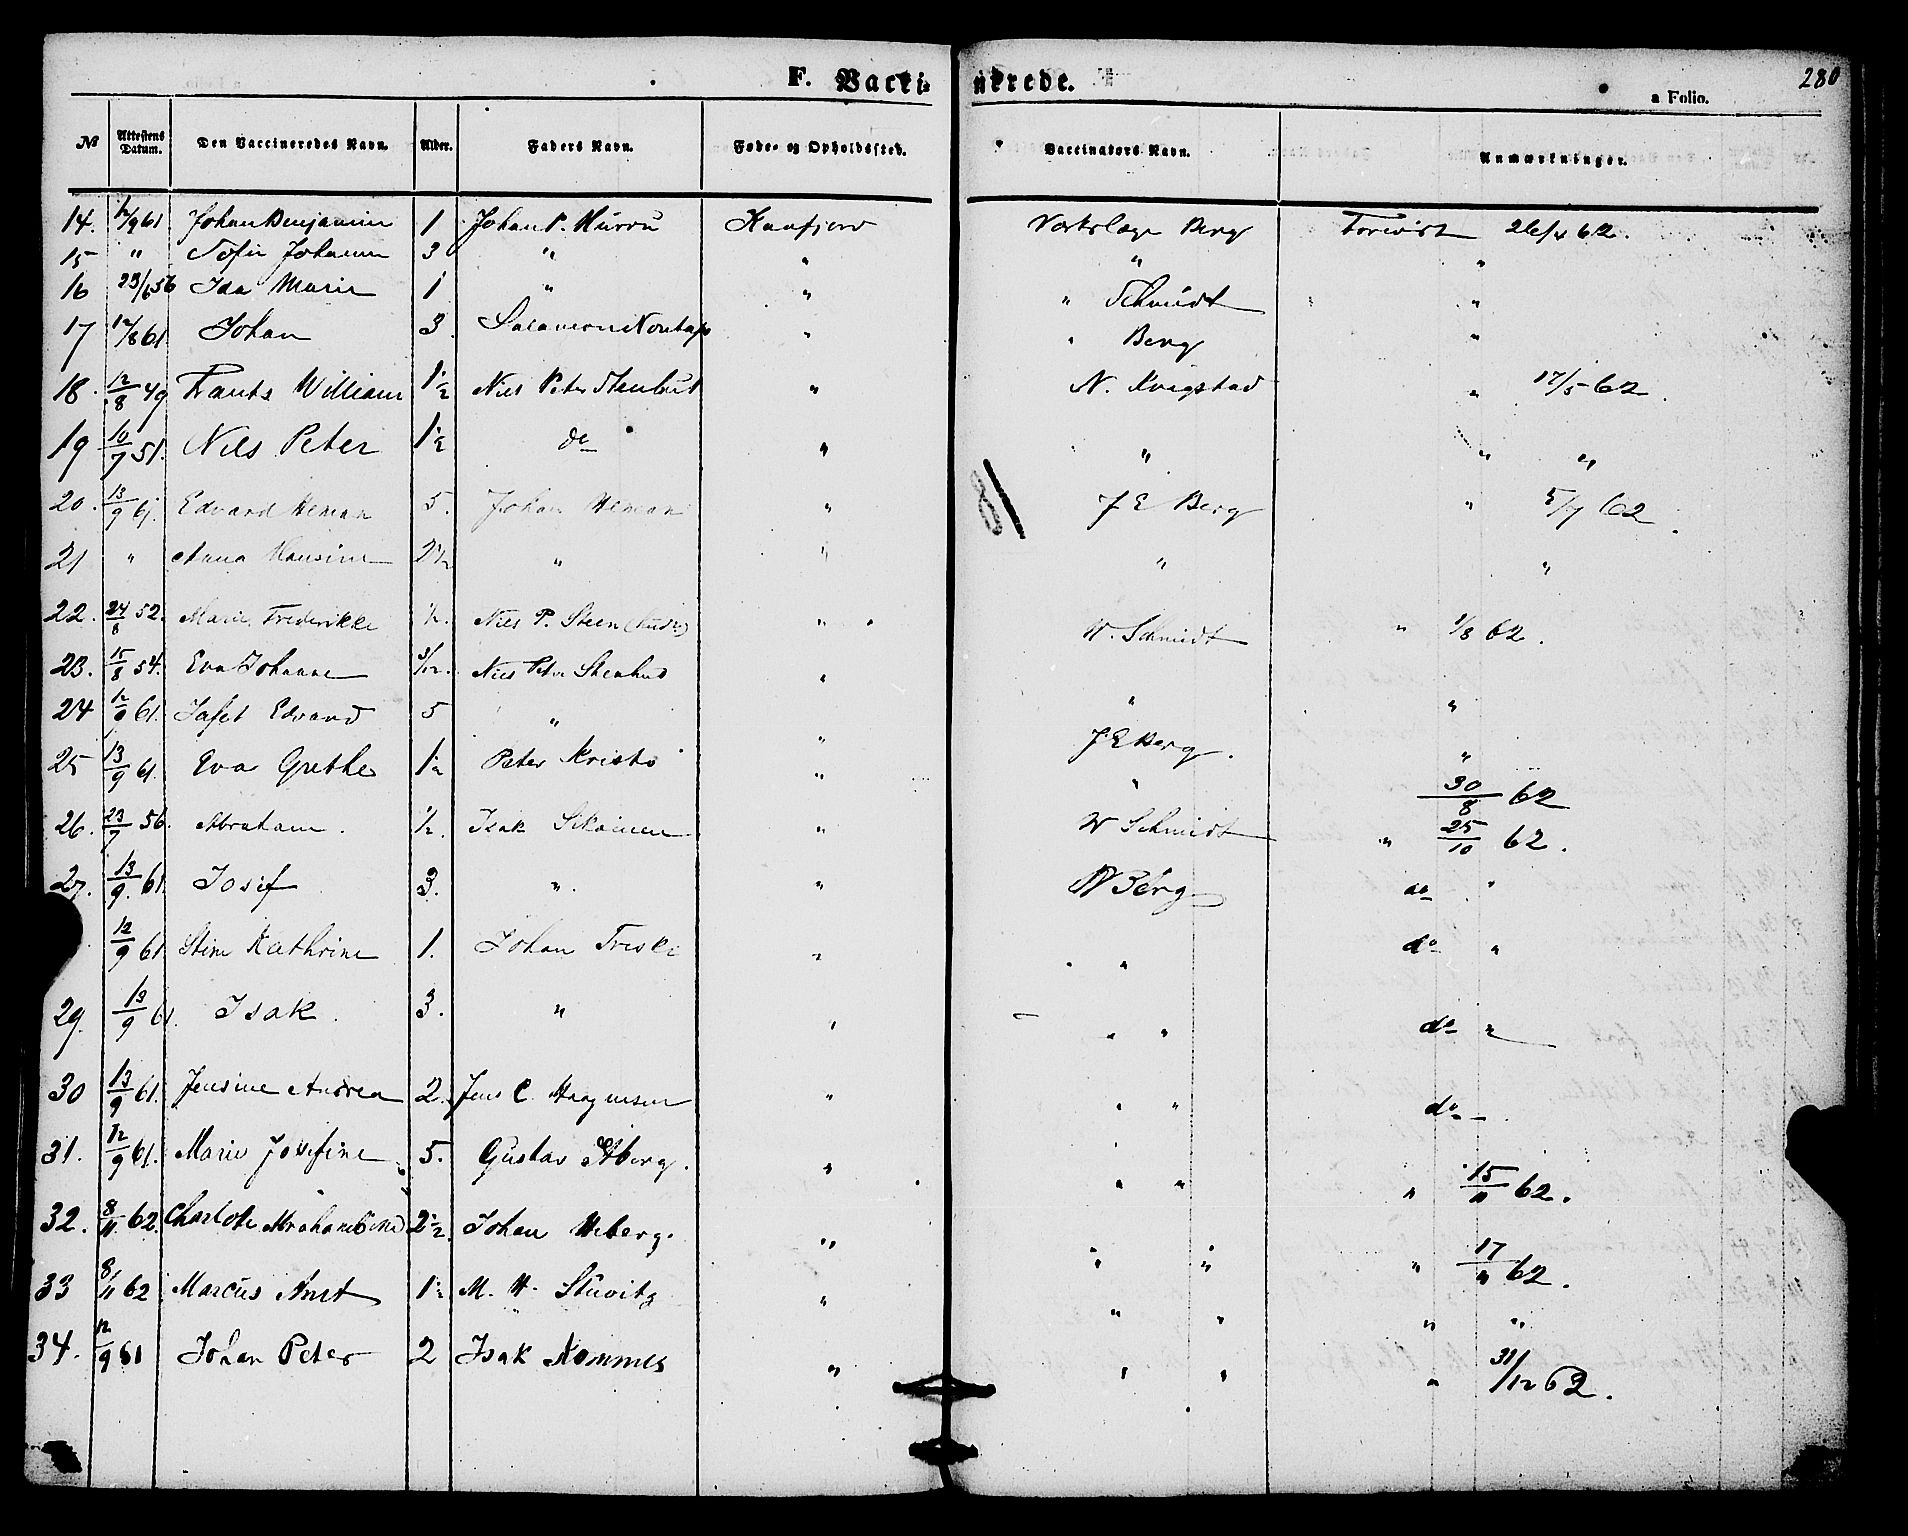 F. Vacki- nerede.
280
a Folio.
№ Attestens Datum. Den Vaccineredes Navn. Alder. Faders Navn. Føde- og Opholdssted. Vaccinators Navn. Anmærkninger.
14. 12/9 61 Johan Benjamin 1 Johan P. Kaafjord Berg Forevist 26/4 62.
15 " Sofie Johanne 3 " " " "
16 23/6 56 Ida Marie 1 " " " Schmidt "
17 12/8 61 Johan 3. " " Berg "
18. 12/8 49 Frants William 1 1/2 Niels Peter " N. Kvigstad " 17/5 62.
19 10/7 51. Nils Peter 1 1/2 do " " " "
20. 13/9 61. Edvard Heman 5. Johan Heman " J E Berg " 5/7 62.
21 " Anna Hansine 2 1/2 " " " "
22. 24/8 52. Marie Frederikke 1/2. Niels P. Steen " W. Schmidt " 1/8 62.
23. 15/8 54. Eva Johanne 3/12. Niels Peter Stenhud " " "
24 61. Jafet Edvard 5 " " J E Berg. "
25 13/9 61. Eva Grethe 1 1/2 Peter Kristo " " 30/8 62
26. 23/7 56. Abraham. 1/2. Isak " W Schmidt " 25/10 62.
27. 13/9. 61 Josef 3. " " Berg do "
12/9 61 Stine Kathrine 1. Johan " " do "
29. 13/9 61. Isak. 3. " " " " do "
30 13/9 61. Jensine Andrea 2. Jens C. " " " do
31. 12/9 61. Marie Josefine 5. Gustav " " " " 15/11 62.
32. 8/11 62. Charlotte 2 1/2. Johan " " " " 17/11 62.
33 8/11 62 Marcus 1 1/2 M. H. " " " " "
34. 12/9 61 Johan Peter 2 Isak " " " " 31/12 62.